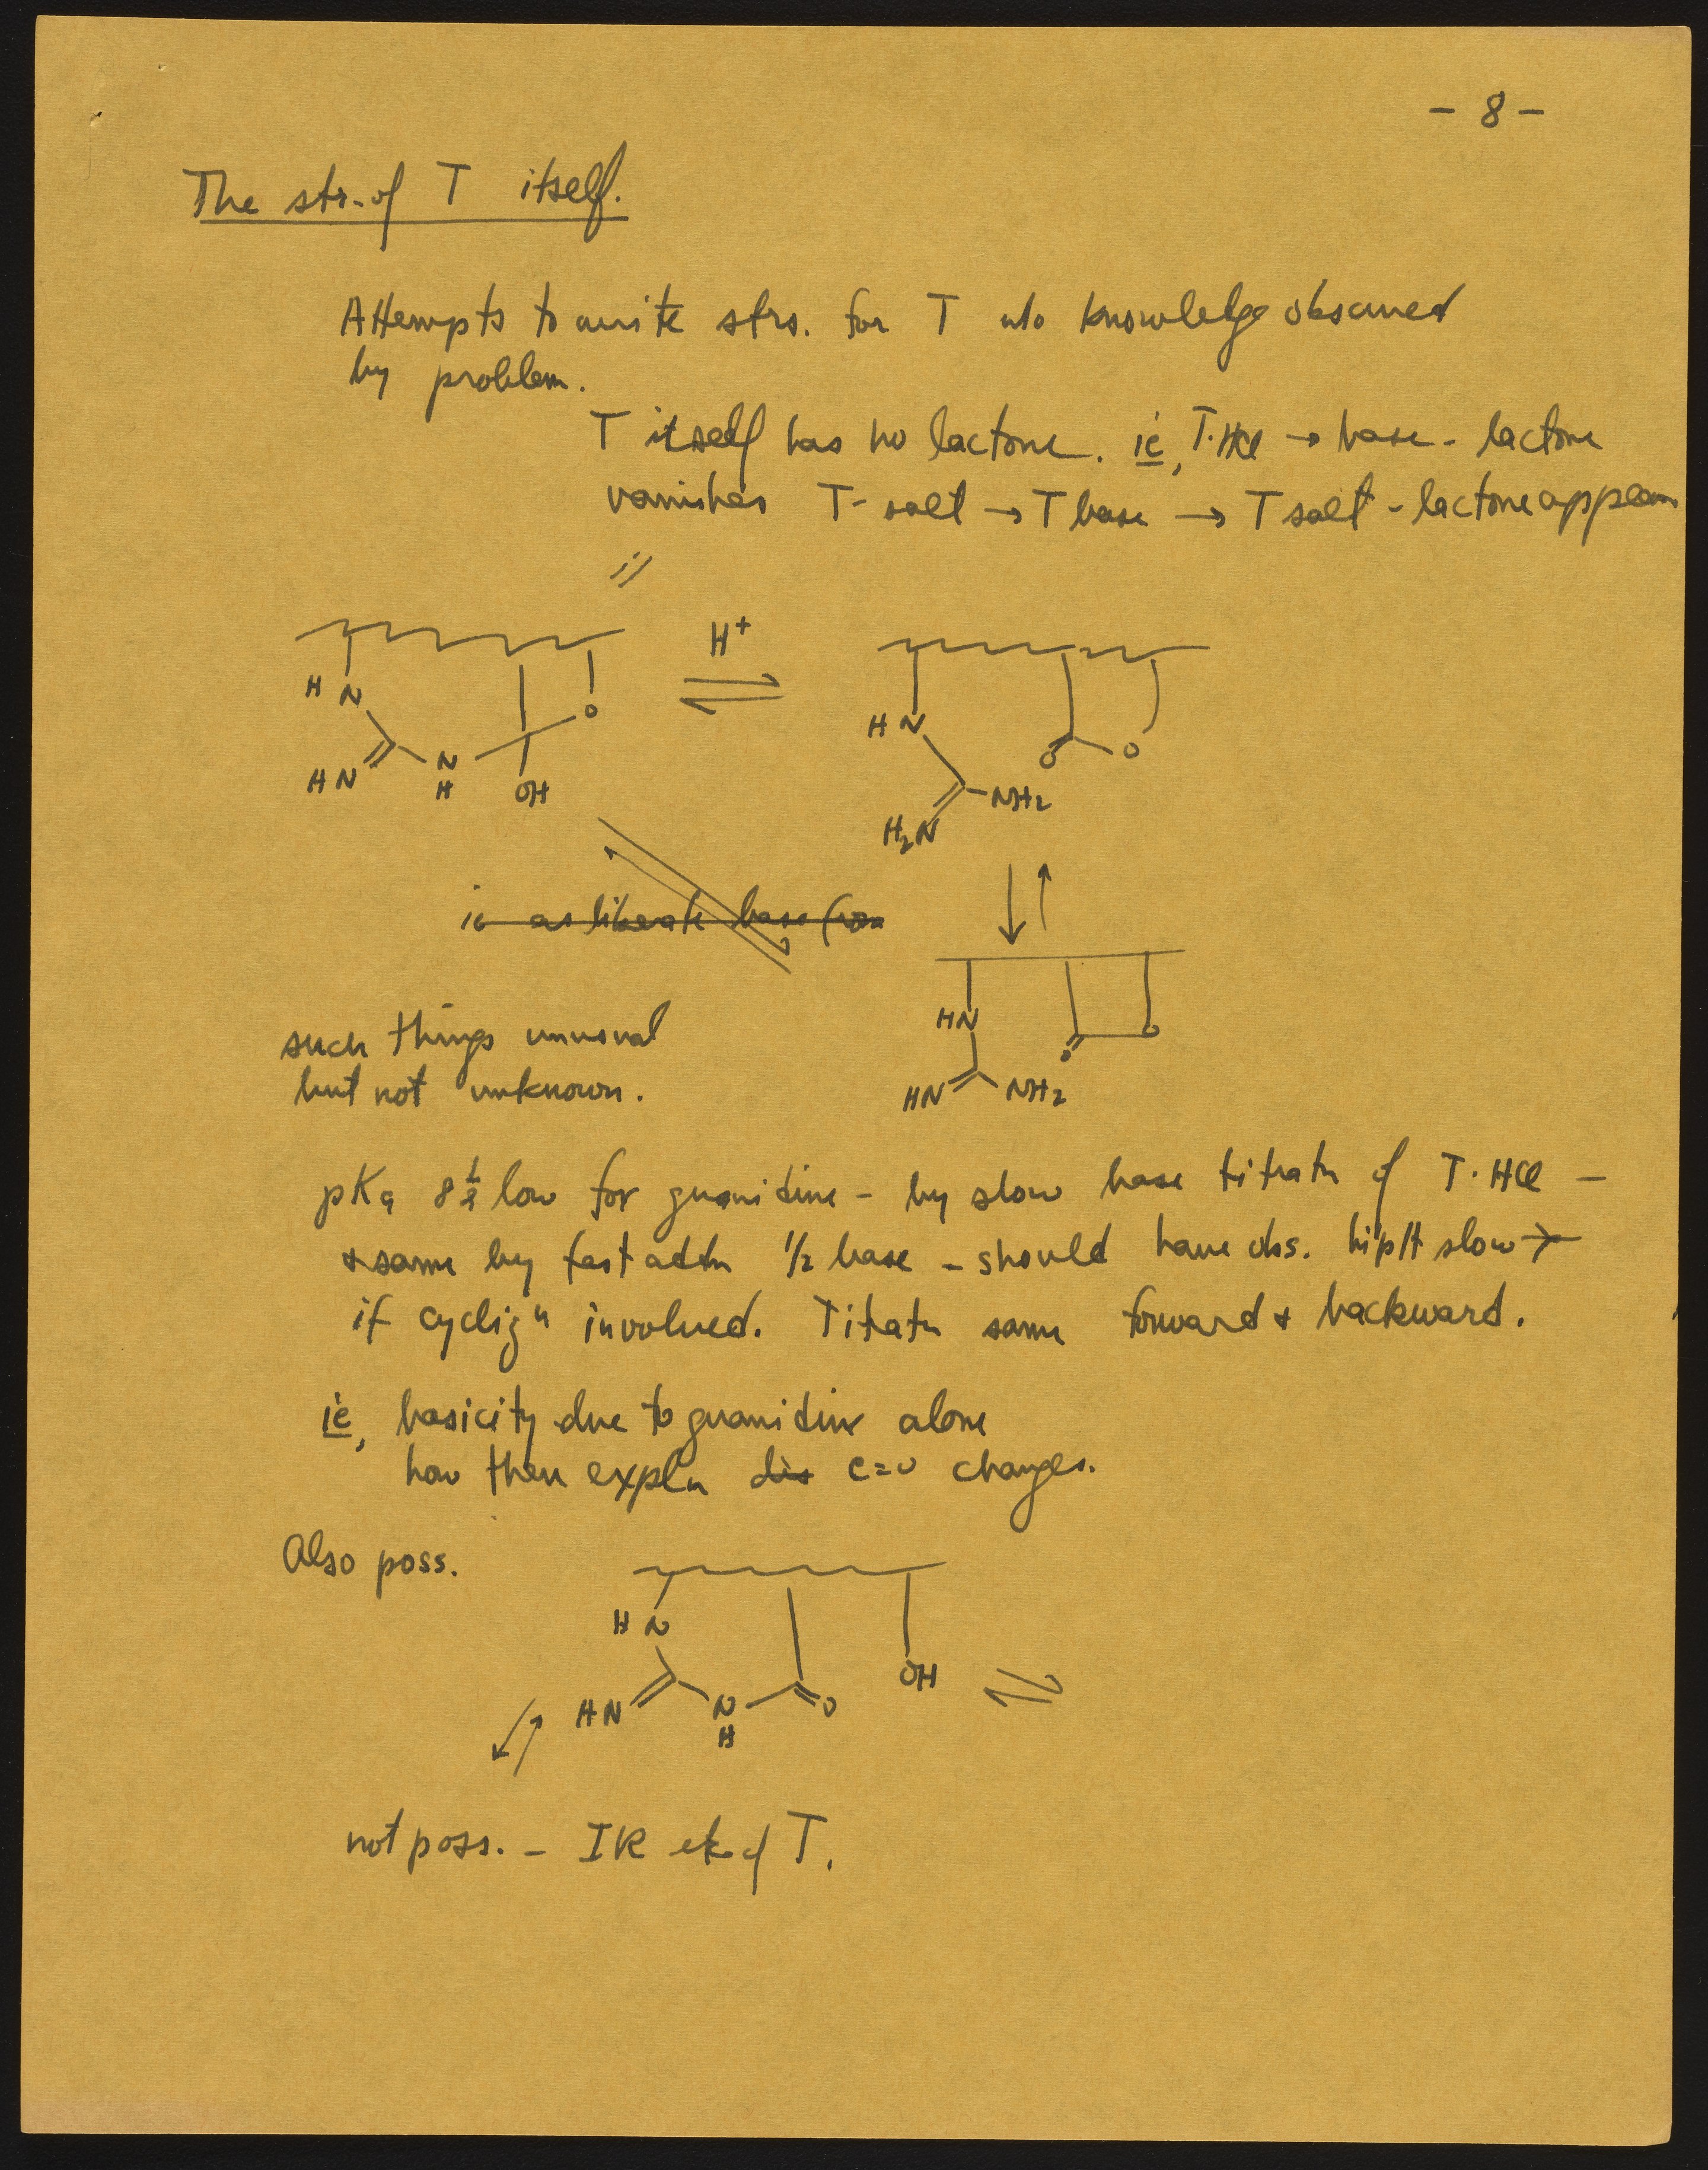 - 8 -
The str. of T itself.
Attempts to write strs. for T w/o knowledge obscured
by problem.
T itself has no lactone. ie, T·HCl → base - lactone
vanishes T-salt → T base → T salt - lactone appears
H N
HN
N
H
OH
O
H+
⇌
H N
H2N
NH2
O
O
ie as liberate base from
HN
HN
NH2
O
O
such things unusual
but not unknown.
pKa 8½ low for guanidine - by slow base titratn of T·HCl -
+ same by fast addn 1/2 base - should have obs. hi pH slow →
if cycliz n involved. Titratn same forward + backward.
ie, basicity due to guanidine alone
how then expln dis c=o changes.
Also poss.
H N
HN
N
H
O
OH
⇌
not poss. - IR etc of T.